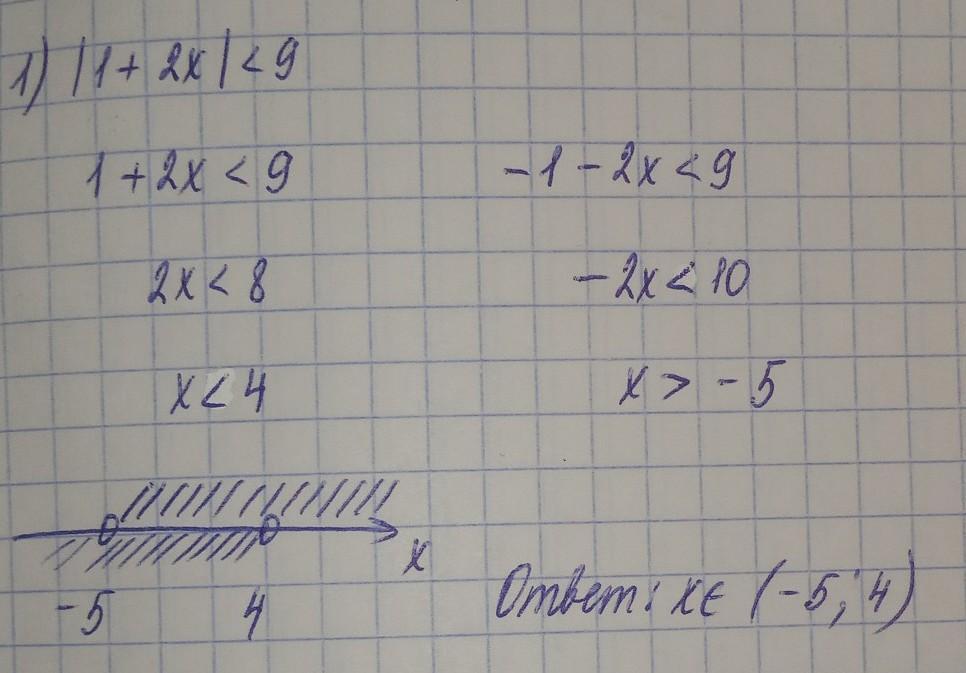 1) |1 + 2x| < 9
1 + 2x < 9 -1 - 2x < 9
2x < 8 -2x < 10
x < 4 x > -5
x
-5 4 Ответ: x ∈ (-5; 4)